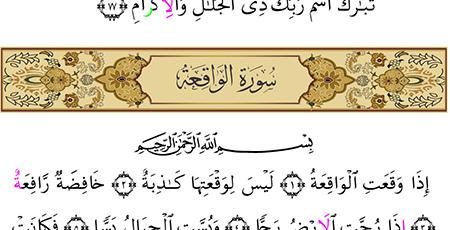 تَبَٰرَكَ ٱسۡمُ رَبِّكَ ذِي ٱلۡجَلَٰلِ وَٱلۡإِكۡرَامِ ﴿٧٧﴾
سُورَةُ الوَاقِعَةِ
بِسۡمِ ٱللَّهِ ٱلرَّحۡمَٰنِ ٱلرَّحِيمِ
إِذَا وَقَعَتِ ٱلۡوَاقِعَةُ ﴿١﴾ لَيۡسَ لِوَقۡعَتِهَا كَاذِبَةٌ ﴿٢﴾ خَافِضَةٌ رَّافِعَةٌ
﴿٣﴾ إِذَا رُجَّتِ ٱلۡأَرۡضُ رَجًّا ﴿٤﴾ وَبُسَّتِ ٱلۡجِبَالُ بَسًّا ﴿٥﴾ فَكَانَتۡ